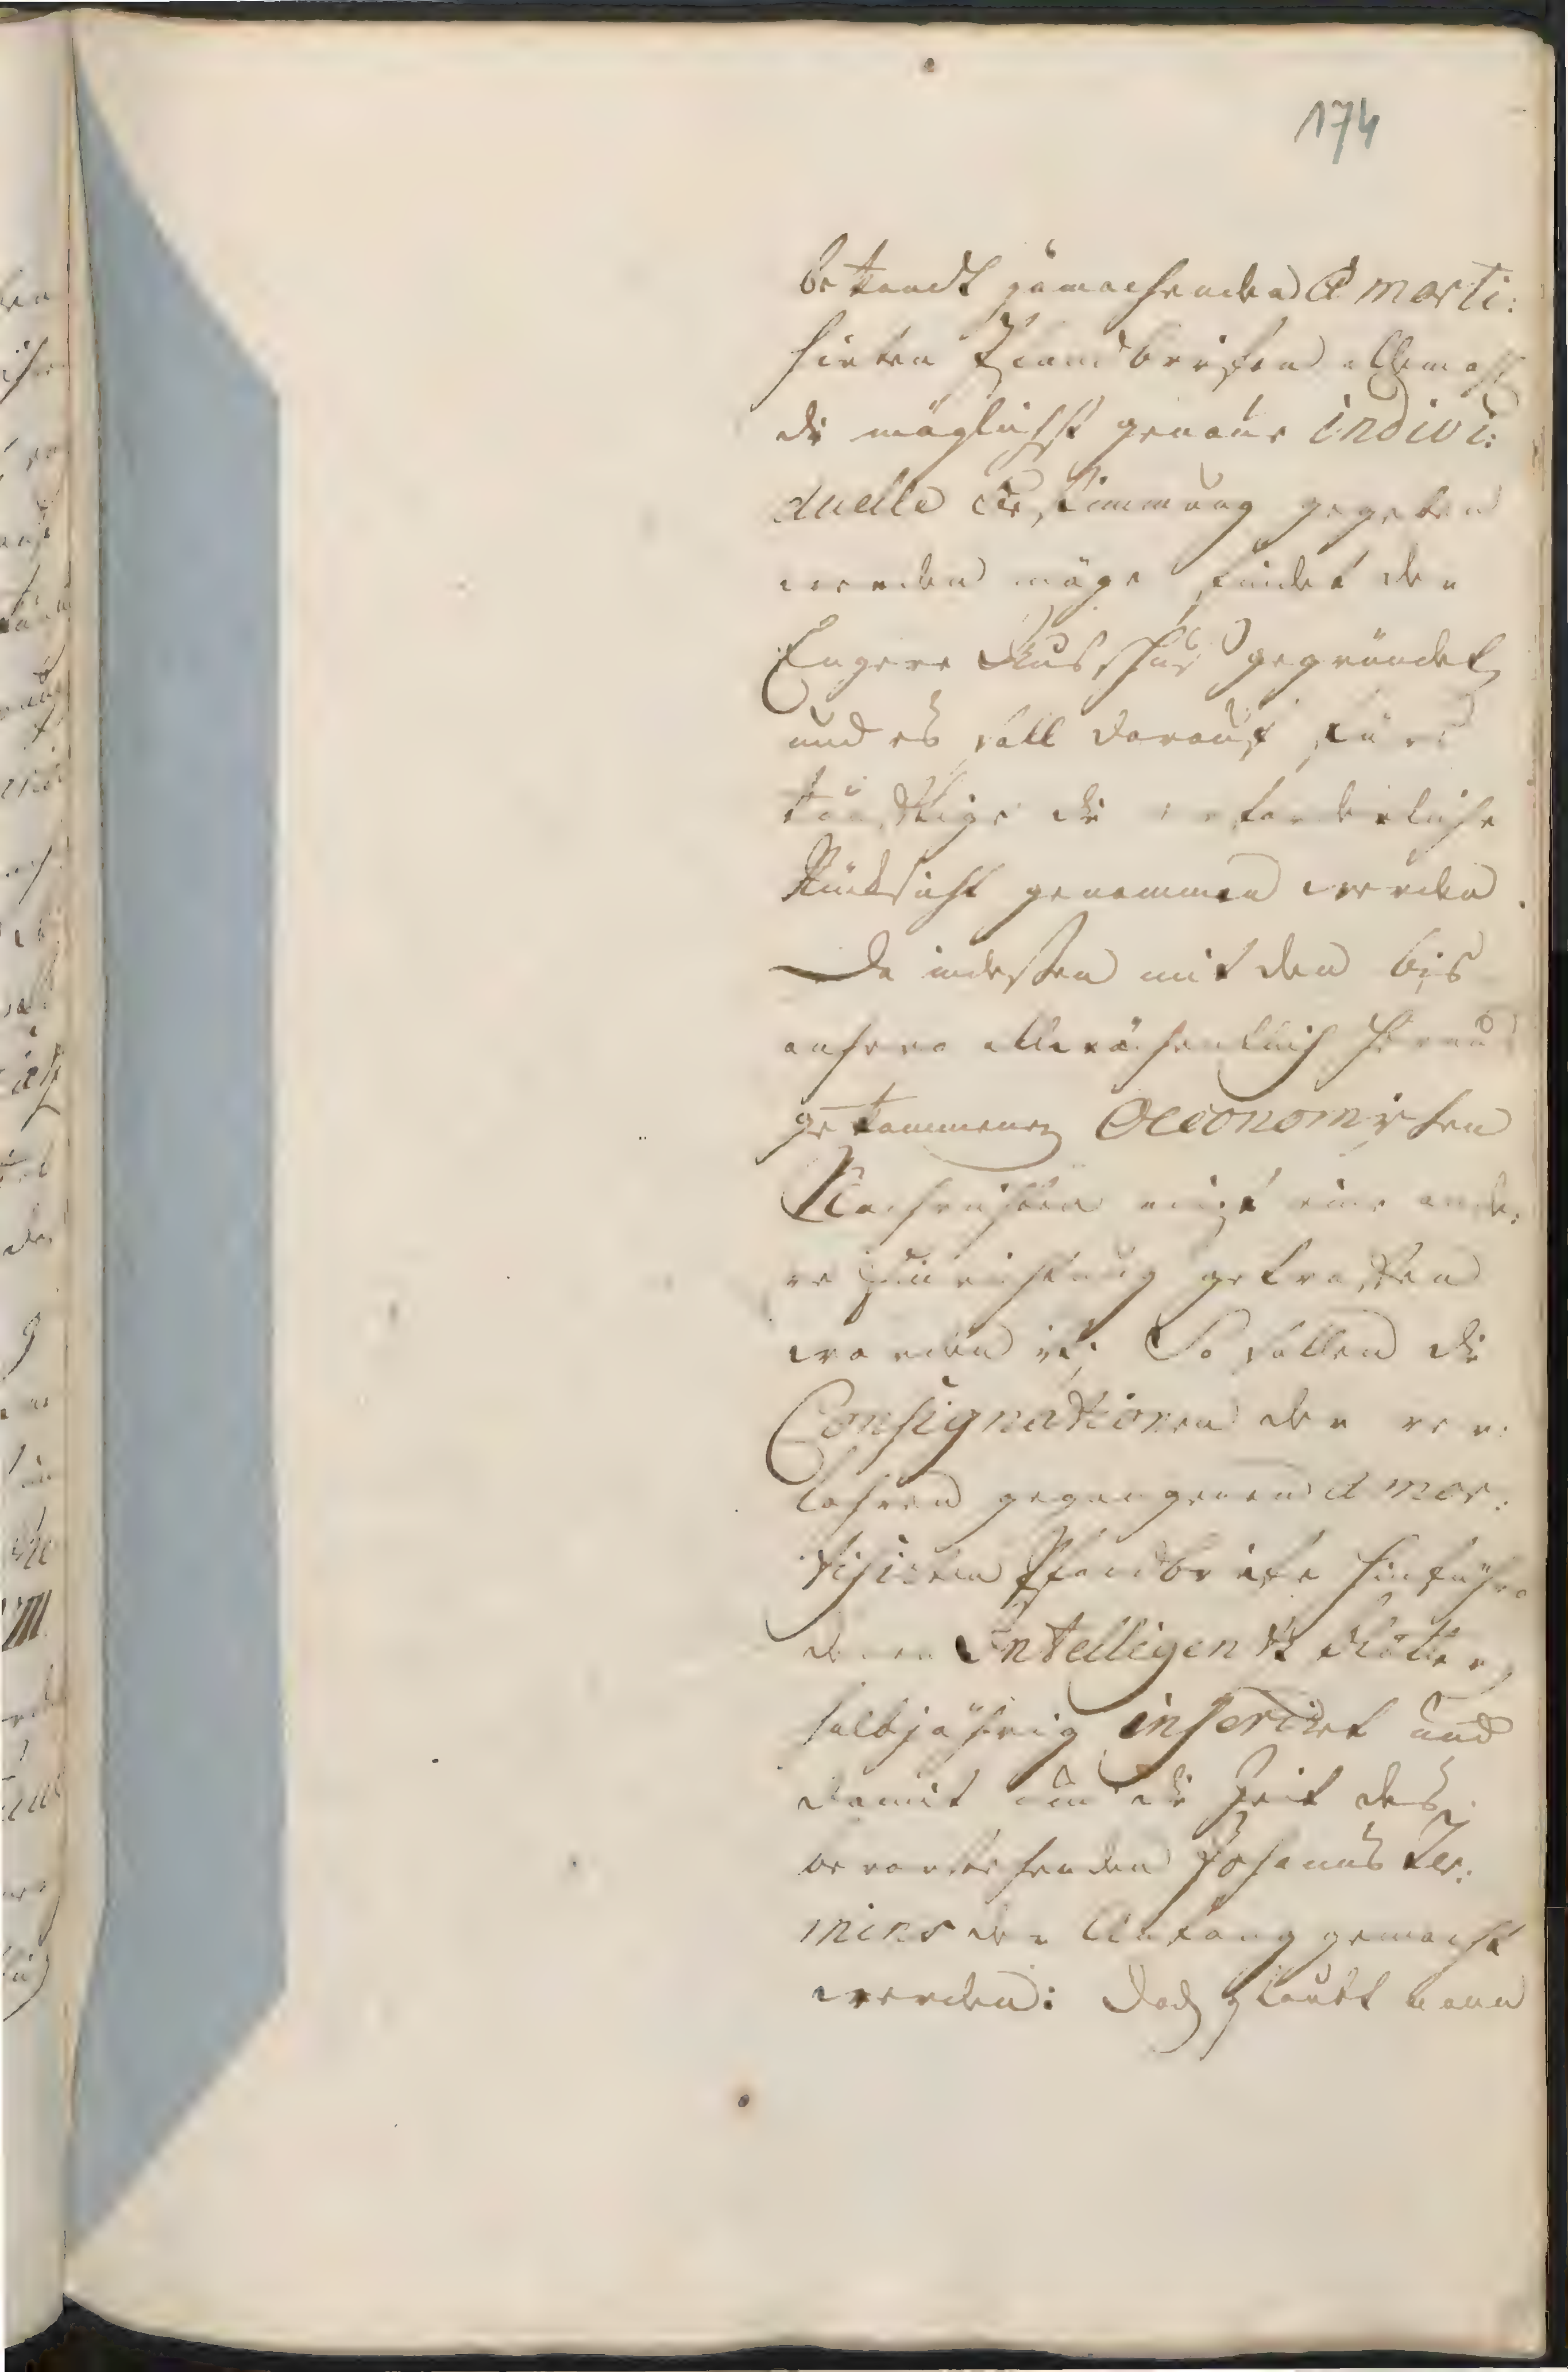 174
bekandt zumachenden Amorti:
sirten Pfandbriefen allemahl
die möglichst genaue indivi:
duelle Bestimmung gegeben
werden möge, findet der
Engere Ausschuß gegründet,
und es soll darauf fürs
künftige die erforderliche
Rücksicht genommen werden.
Da indeßen mit den bis
anhero allwöchentlich heraus
gekommenen Oeconomischen
Nachrichten eine ande:
re Einrichtung getroffen
worden ist; So sollen die
Consignationen der ver:
lohren gegangenen Amor:
tisirten Pfandbriefe hinführo
denen Intelligentz Blättern
halbjährig inseriret und
damit um die Zeit des
bevorstehenden Johannis Ter:
mins der Anfang gemacht
werden: Doch glaubt man